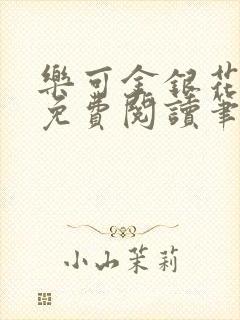 樂可金銀花
免費閱讀筆
小山茉莉